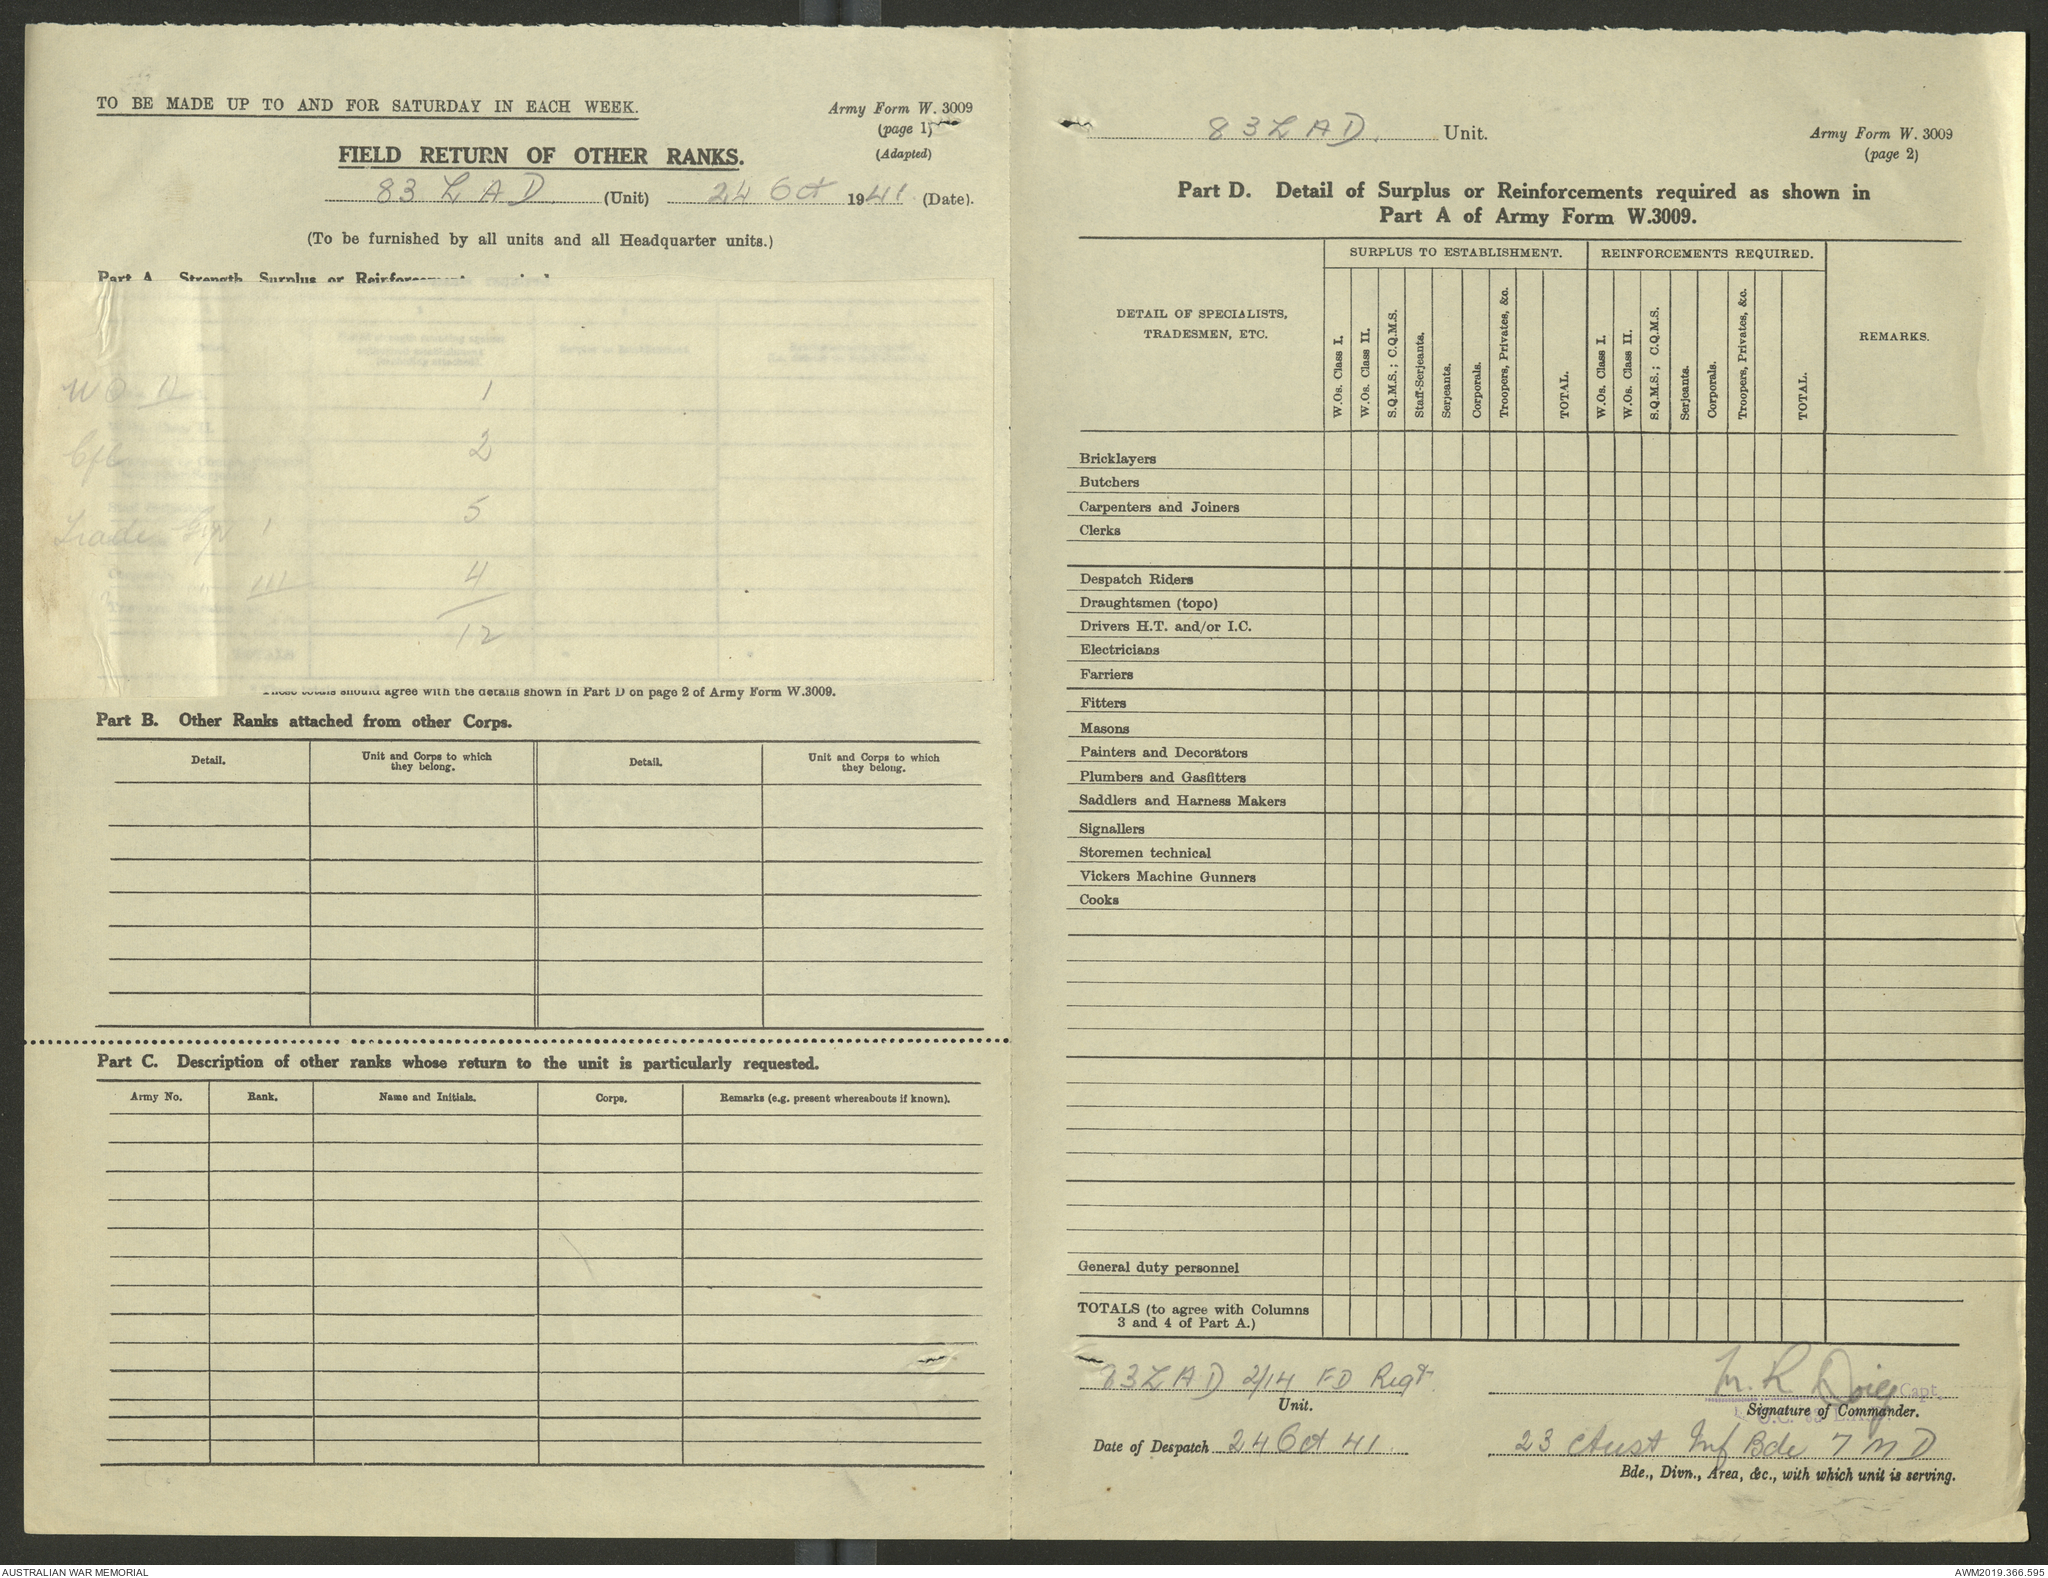 TO BE MADE UP TO AND FOR SATURDAY IN EACH WEEK.
Army Form W. 3009
(page 1)
(Adapted)
FIELD RETURN OF OTHER RANKS.
83 LAD (Unit) 24 Oct 1941 (Date).
(To be furnished by all units and all Headquarter units.)
Part A. Strength, Surplus or Reinforcements required
WO II 1
Cfc 2
Trade Grp I 5
III 4
12
These totals should agree with the details shown in Part D on page 2 of Army Form W.3009.
Part B. Other Ranks attached from other Corps.
Detail. Unit and Corps to which they belong. Detail. Unit and Corps to which they belong.
Part C. Description of other ranks whose return to the unit is particularly requested.
Army No. Rank. Name and Initials. Corps. Remarks (e.g. present whereabouts if known).
83 LAD. Unit.
Army Form W. 3009
(page 2)
Part D. Detail of Surplus or Reinforcements required as shown in
Part A of Army Form W.3009.
SURPLUS TO ESTABLISHMENT. REINFORCEMENTS REQUIRED.
DETAIL OF SPECIALISTS,
TRADESMEN, ETC.
W.Os. Class I.
W.Os. Class II.
S.Q.M.S.; C.Q.M.S.
Staff-Serjeants.
Serjeants.
Corporals.
Troopers, Privates, &c.
TOTAL.
W.Os. Class I.
W.Os. Class II.
S.Q.M.S.; C.Q.M.S.
Serjeants.
Corporals.
Troopers, Privates, &c.
TOTAL.
REMARKS.
Bricklayers
Butchers
Carpenters and Joiners
Clerks
Despatch Riders
Draughtsmen (topo)
Drivers H.T. and/or I.C.
Electricians
Farriers
Fitters
Masons
Painters and Decorators
Plumbers and Gasfitters
Saddlers and Harness Makers
Signallers
Storemen technical
Vickers Machine Gunners
Cooks
General duty personnel
TOTALS (to agree with Columns
3 and 4 of Part A.)
83 LAD 2/14 FD Regt
Unit.
M. R. Doig Capt.
O.C. 83 L.A.D.
Signature of Commander.
Date of Despatch 24 Oct 41
23 Aust Inf Bde 7 MD
Bde., Divn., Area, &c., with which unit is serving.
AUSTRALIAN WAR MEMORIAL
AWM2019.366.595